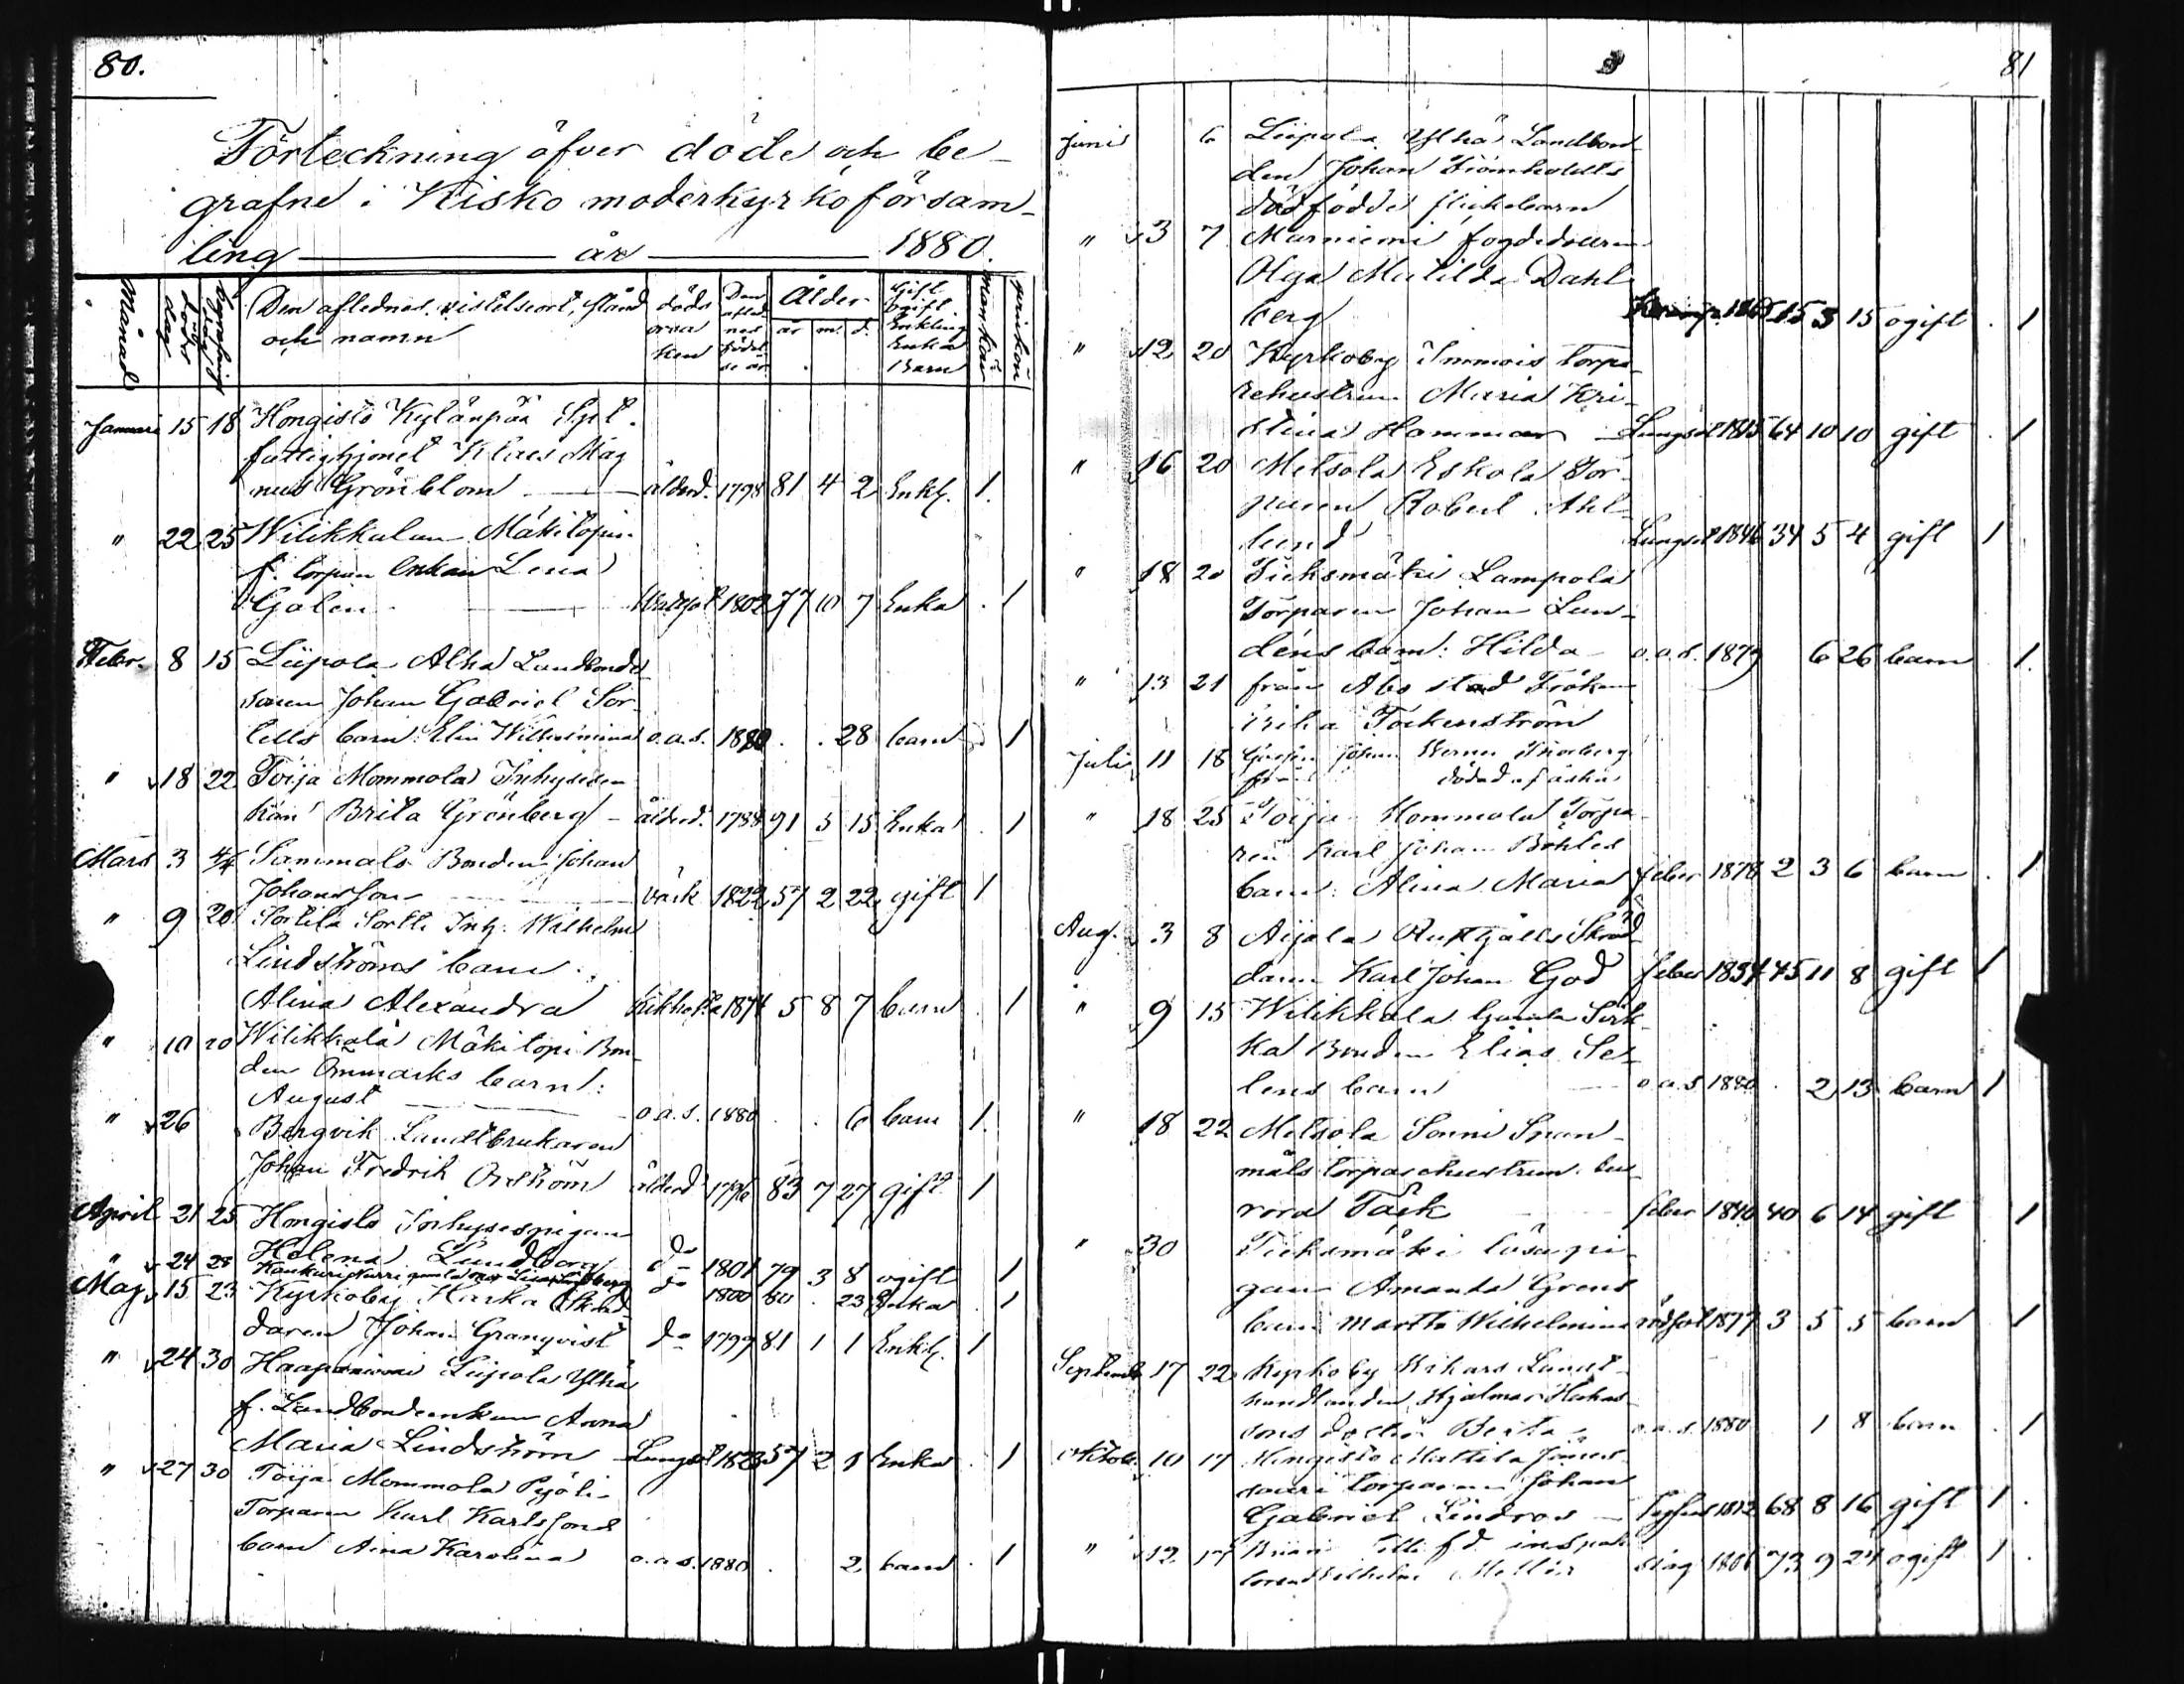 80.
Förteckning öfver döde och be-
grafne i Kisko moderkyrkoförsam-
ling — år — 1880.
Månad
döds dag
begrafnings dag
Den aflednes vistelseort, stånd
och namn
döds
orsa
ken
Den
afled
nes
födel
se år
Ålder
år m. d.
Gift
Ogift
Enkling
Enka
Barn
mankön
qvinkön
Januari 15 18 Hongisto Kylänpää Sytt.
fattighjonet Klaes Mag
nus Grönblom — ålderd. 1798 81 4 2 Enkl. 1.
" 22 25 Wilikkalan Mäkitopin
f. torpare enkan Lena
Galen — 1802 77 10 7 Enka . 1
Febr. 8 15 Liipola Alha Landbonde
sonen Johan Gabriel Sor
lells barn: Elin Wilhelmina o.a.s. 1880 . . 28 barn . 1
" 18 22 Toija Mommola Inhyses en
kan Brita Grönberg — ålderd. 1788 91 5 15 Enka . 1
Mars 3 4/4 Sammalo Bonden Johan
Johansson — värk 1822 57 2 22 gift 1
" 9 20 Sortila Sortti Inh. Wilhelm
Lindströms barn
Alina Alexandra Kikhosta 1874 5 8 7 barn . 1
" 10 20 Wilikkala Mäkitopi Bon-
den Ommarks barn:
August — o.a.s. 1880 . . 6 barn 1.
" 26 Bergvik Landtbrukaren
Johan Fredrik Orström ålderd 1796 83 7 27 gift 1
April 21 25 Hongisto Inhysespigan
Helena Lundborg do 1801 79 3 8 ogift 1
" 24 28 do 1800 80 . 23 Enka . 1
Maj 15 23 Kyrkoby Harka Skräd
daren Johan Granqvist do 1799 81 1 1 Enkl. 1
" 24 30 Haapaniemi Liipola Ylhä
f. Landbondeenkan Anna
Maria Lindström — Lungsot 1823 57 2 1 Enka . 1
" 27 30 Toija Mommola Pyöli
Torparen Karl Karlssons
barn Aina Karolina o.a.s. 1880 . 2 barn . 1
81
Juni 6 Liipola Ylhä Landbon
den Johan Strömholdts
dödfödde flickobarn
" 3 7 Marniemi fogdedottren
Olga Matilda Dahl
berg 1865 15 3 15 ogift . 1
" 12 20 Kyrkoby Immois torpa
rehustrun Maria Kri-
stina Hammar — Lungsot 1815 64 10 10 gift . 1
" 16 20 Metsola Eskola Tor
paren Robert Ahl
lund Lungsot 1846 34 5 4 gift 1
" 18 20 Tieksmäki Lampola
Torparen Johan Lun-
déns barn: Hilda o.a.s. 1879 6 26 barn . 1.
" 13 21 från Åbo stad Fröken
Erika Tockenström
Juli 11 18 Johan Werner
från
" 18 25 Toija Mommola Torpa
ren Karl Johan Böhles
barn: Alina Maria feber 1878 2 3 6 barn . 1
Aug. 3 8 Aijala Rustgälls Skräd
daren Karl Johan God feber 1834 45 11 8 gift 1
" 9 15 Wilikkala Gamla Sirk
ka Bonden Elias Se
lens barn — o.a.s 1880 . 2 13 barn 1
" 18 22 Metsola Sonni Snan-
måls torparehustrun Au
rora Täck — feber 1840 40 6 14 gift 1
" 30 Tieksmäki lösa pi
gan Amanda Grens
barn Martta Wilhelmina rödsot 1877 3 5 5 barn 1
Septemb. 17 22 Kyrkoby Rikars Landt
handlanden Hjalmar
sons dotter Berta o.a.s. 1880 1 8 barn . 1
Oktob. 10 17 Hongisto Mattila
torparen Johan
Gabriel Lindros — 1812 68 8 16 gift 1 .
" 12 17 f d inspek
toren Wilhelm Mellin slag 1806 73 9 24 ogift 1 .